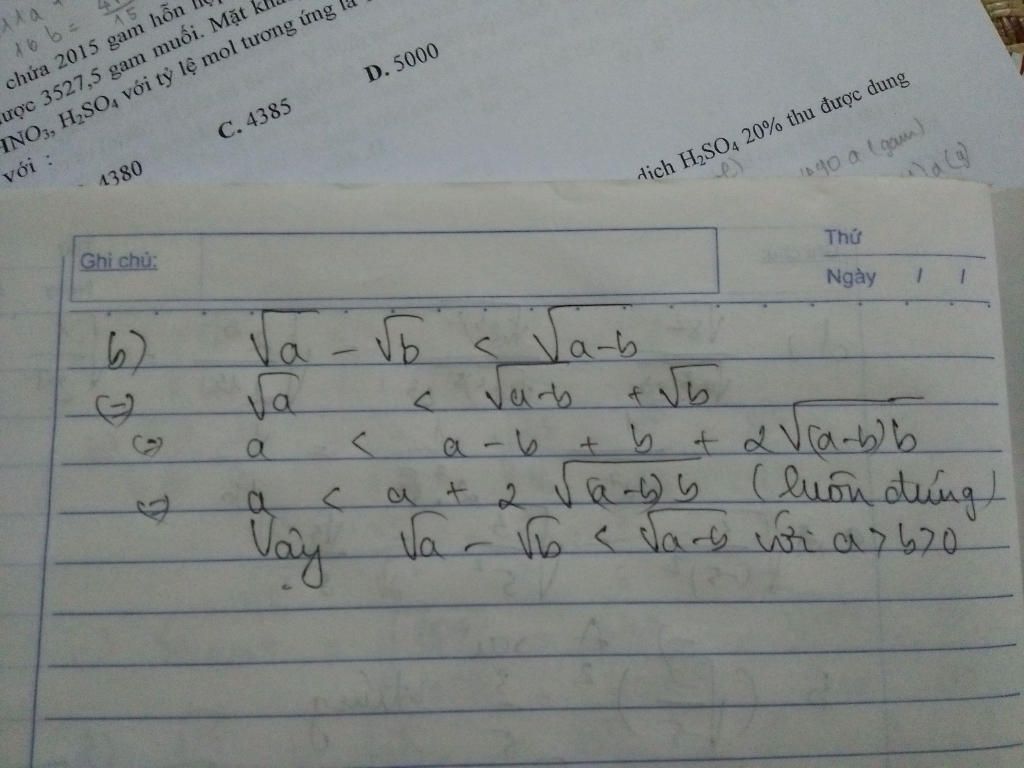 11a
16b = 
15
chứa 2015 gam hỗn
3527,5 gam muối. Mặt
HNO₃, H₂SO₄ với tỷ lệ mol tương ứng là
với :
4380
C. 4385
D. 5000
dịch H₂SO₄ 20% thu được dung
90 a (gam)
Ghi chú:
Thứ
Ngày / /
b) √a - √b < √(a-b)
(=) √a < √(a-b) + √b
(=) a < a - b + b + 2√((a-b)b)
(=) a < a + 2√((a-b)b) (luôn đúng)
Vậy √a - √b < √(a-b) với a > b > 0